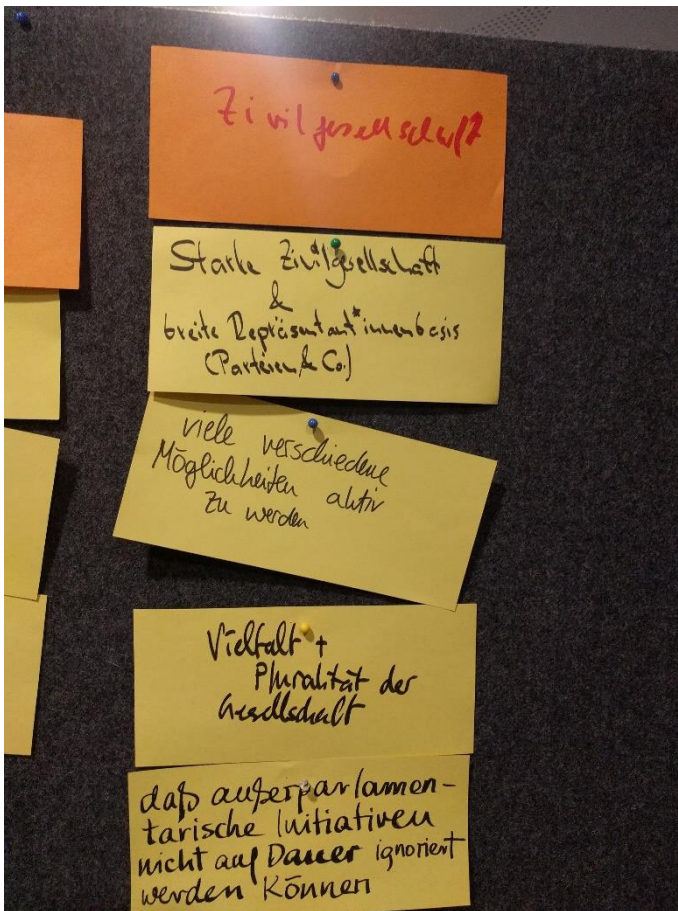 Zivilgesellschaft
Starke Zivilgesellschaft
&
breite Repräsentant*innenbasis
(Parteien & Co.)
viele verschiedene
Möglichkeiten aktiv
zu werden
Vielfalt +
Pluralität der
Gesellschaft
daß außerparlamen-
tarische Initiativen
nicht auf Dauer ignoriert
werden können